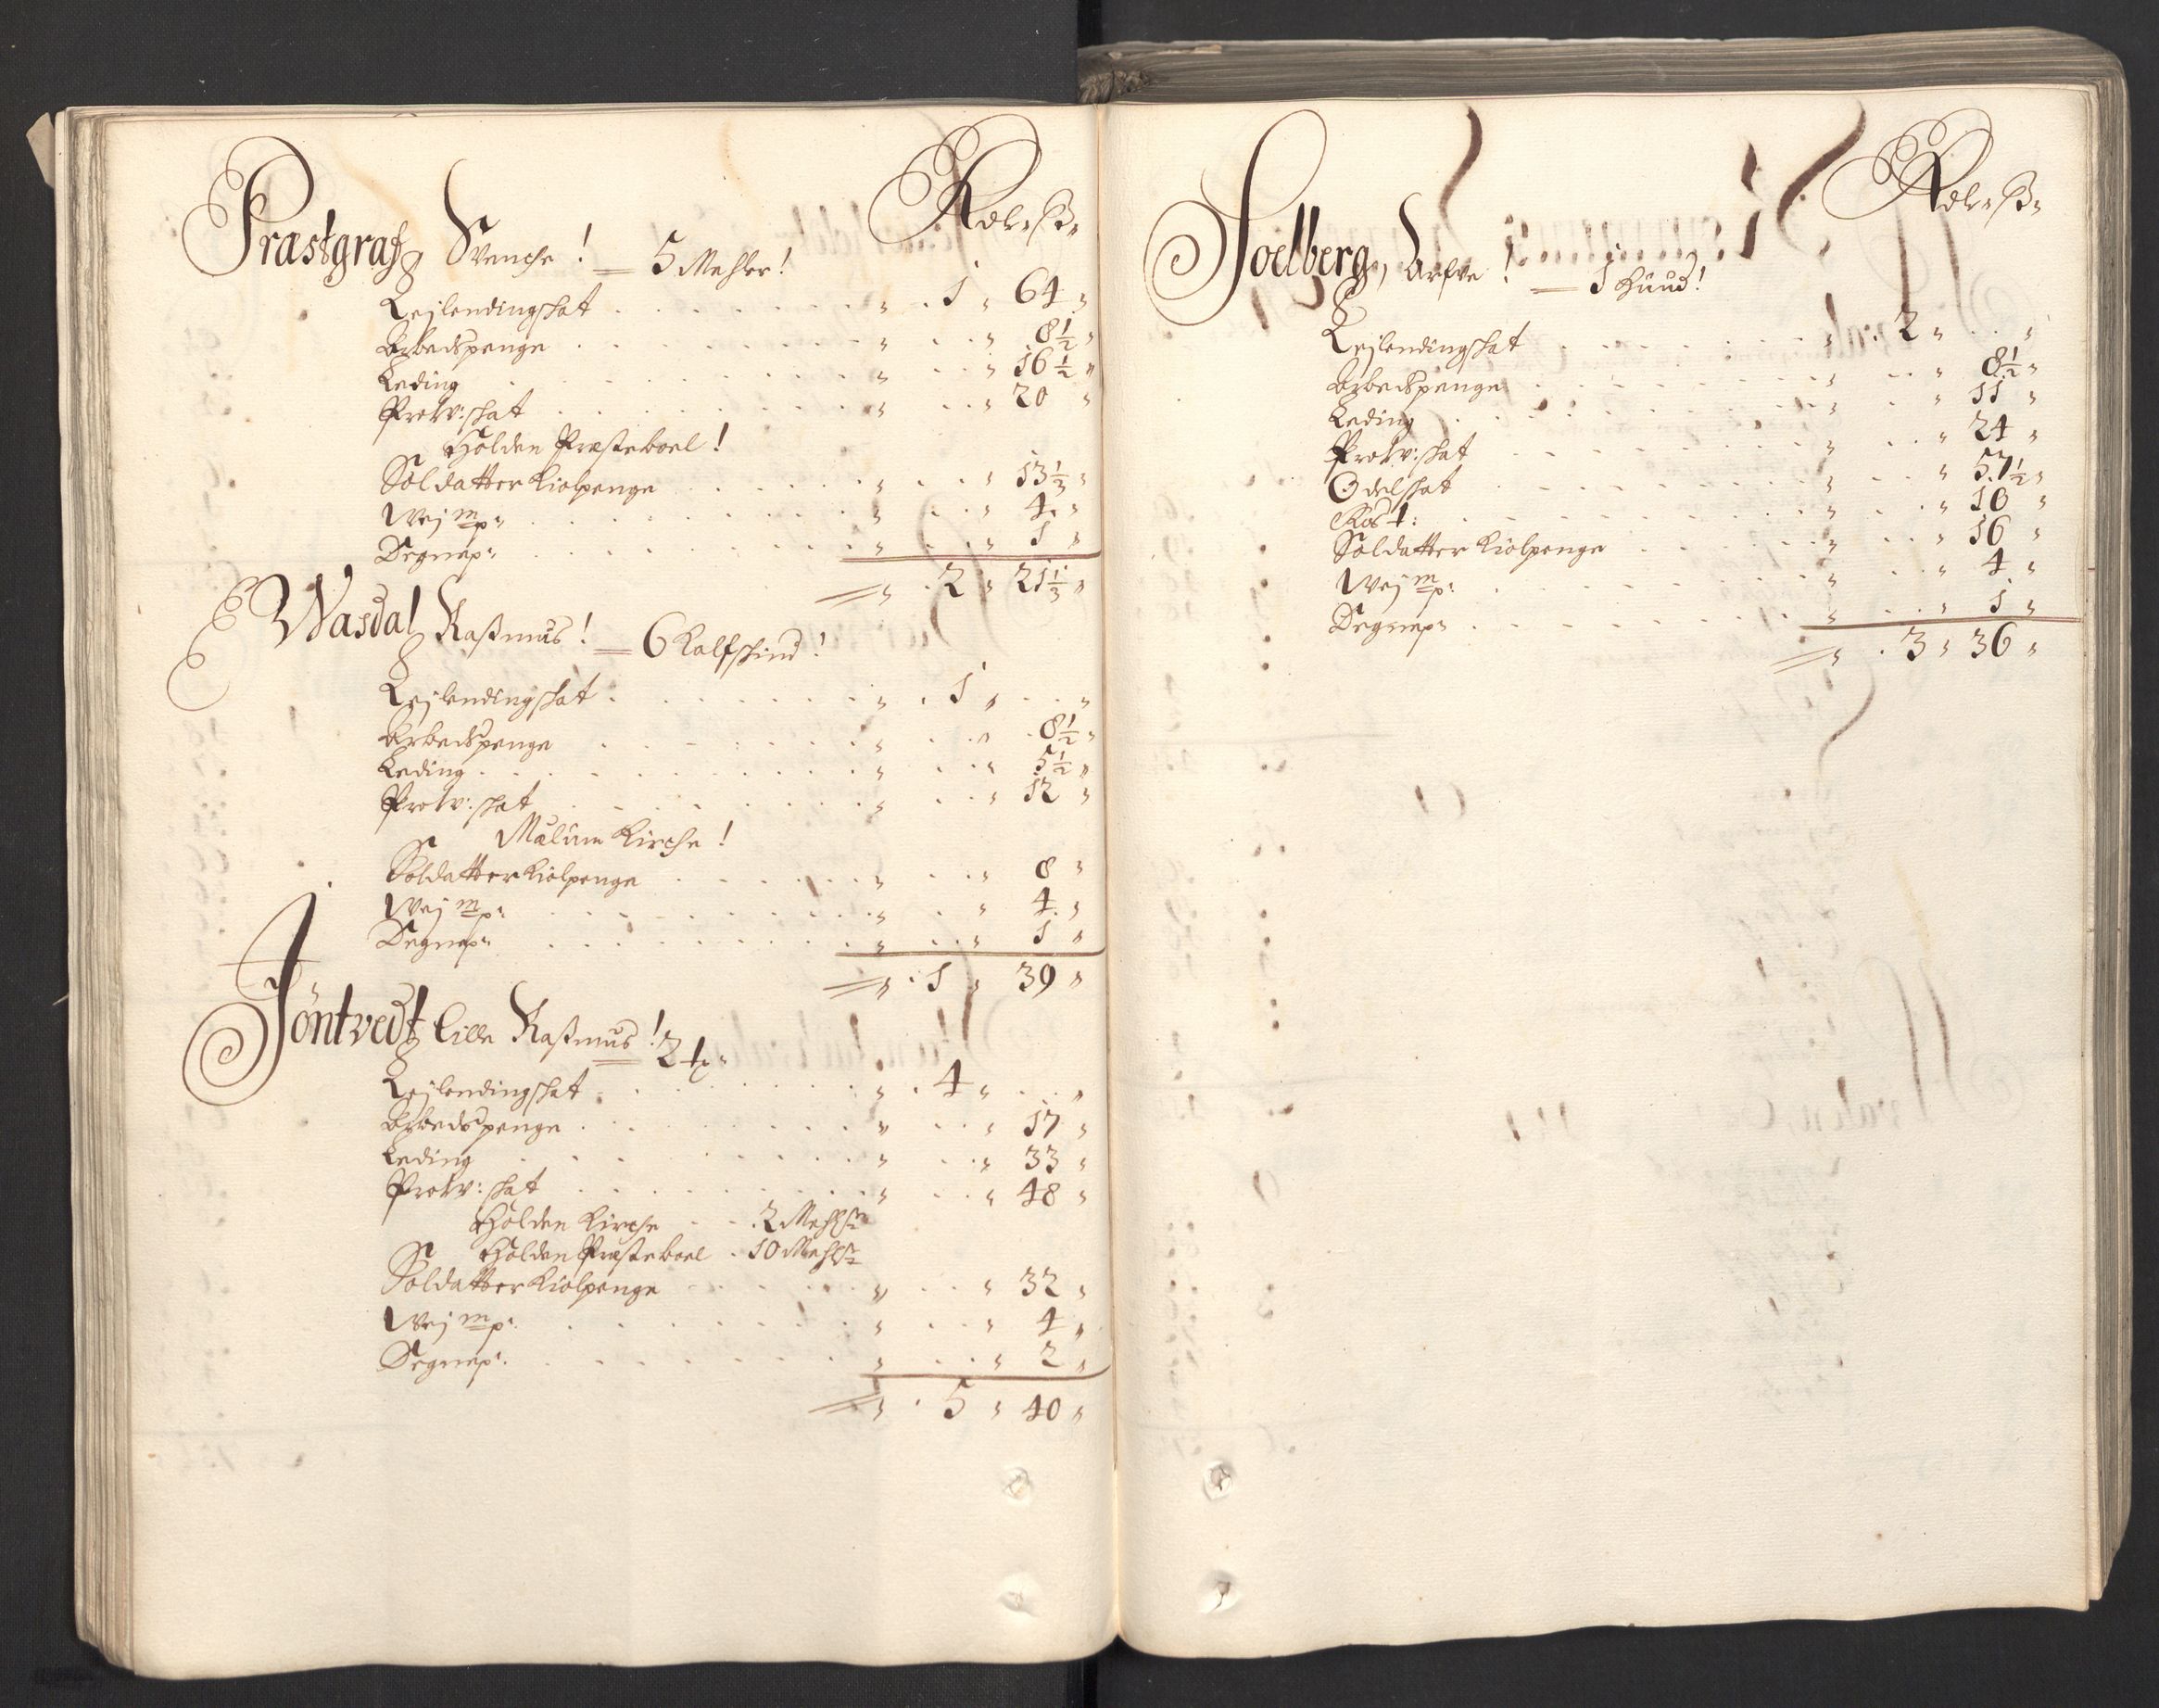 Rdlr ß
Præstgraf Svenche! 5 Mehler!
Lejlendingschat 1 64
Arbedspenge 8½
Leding 16½
Prow: schat 20
Holden Præsteboel!
Soldatter Kiolpenge 13⅓
Wej mp: 4
Degnep: 1
2 21⅓
Wasdal Rasmus! 6 Kalfskind!
Lejlendingschat 1
Arbedspenge 8½
Leding 5½
Prow: schat 12
Mælum Kirche!
Soldatter Kiolpenge 8
Wej mp: 4
Degnep: 1
1 39
Jöntvedt lille Rasmus! 2
Lejlendingschat 4
Arbedspenge 17
Leding 33
Prow: schat 48
Holden Kirche 2 Mehlsr
Holden Præsteboel 10 Mehlsr
Soldatter Kiolpenge 32
Wej mp: 4
Degnep: 2
5 40
Rdlr ß
Soelberg, Arfve! 1 Huud!
Lejlendingschat 2
Arbedspenge 8½
Leding 11
Prow: schat 24
Odelschat 57½
Ros t: 10
Soldatter Kiolpenge 16
Wej mp: 4
Degnep: 1
3 36